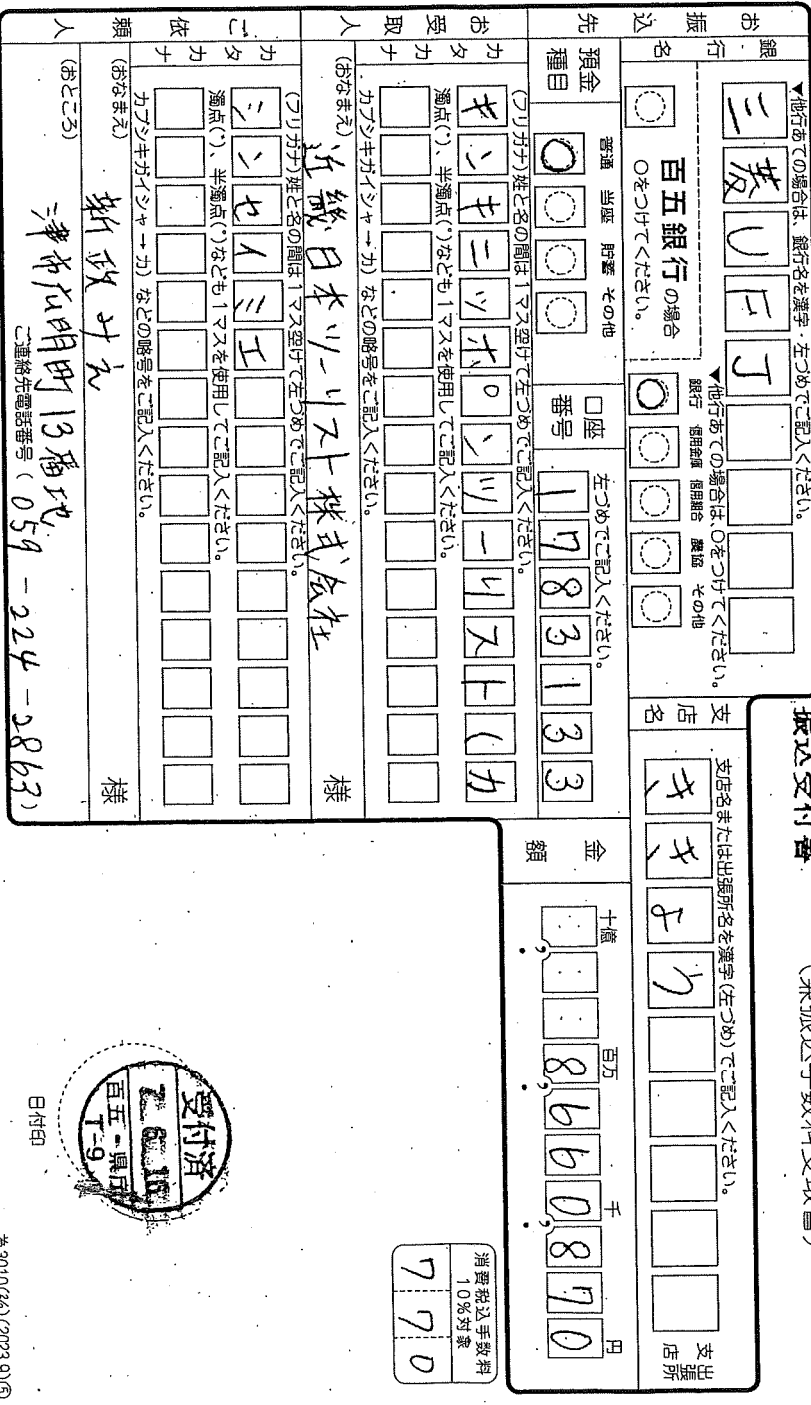 振込受付書
お振込先
銀行名
▼他行あての場合は、銀行名を漢字・左づめでご記入ください。
三菱UFJ
百五銀行の場合
○をつけてください。
▼他行あての場合は、○をつけてください。
銀行 信用金庫 信用組合 農協 その他
支店名
支店名または出張所名を漢字(左づめ)でご記入ください。
ききょう
支店
出張所
預金種目
普通 当座 貯蓄 その他
口座番号
左づめでご記入ください。
1783133
金額
十億 百万 千 円
8,660,870
お受取人
カタカナ
(フリガナ)姓と名の間は1マス空けて左づめでご記入ください。
キンキニッポンツーリスト(カ
濁点(゛)、半濁点(゜)なども1マスを使用してご記入ください。
カブシキガイシャ→カ)などの略号をご記入ください。
(おなまえ)
近畿日本ツーリスト株式会社
様
ご依頼人
カタカナ
(フリガナ)姓と名の間は1マス空けて左づめでご記入ください。
シンセイミエ
濁点(゛)、半濁点(゜)なども1マスを使用してご記入ください。
カブシキガイシャ→カ)などの略号をご記入ください。
(おなまえ)
新政みえ
様
(おところ)
津市広明町13番地
ご連絡先電話番号(059-224-2863)
消費税込手数料
10%対象
770
受付済
百五・県庁
T-9
日付印